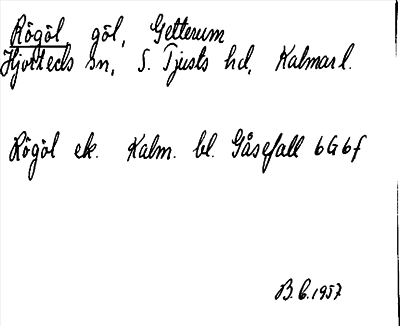 Rögöl göl, Getterum
Hjorteds sn, S. Tjusts hd, Kalmar l.
Rögöl ek. Kalm. bl. Gåsefall 6G6f
B.C.1957